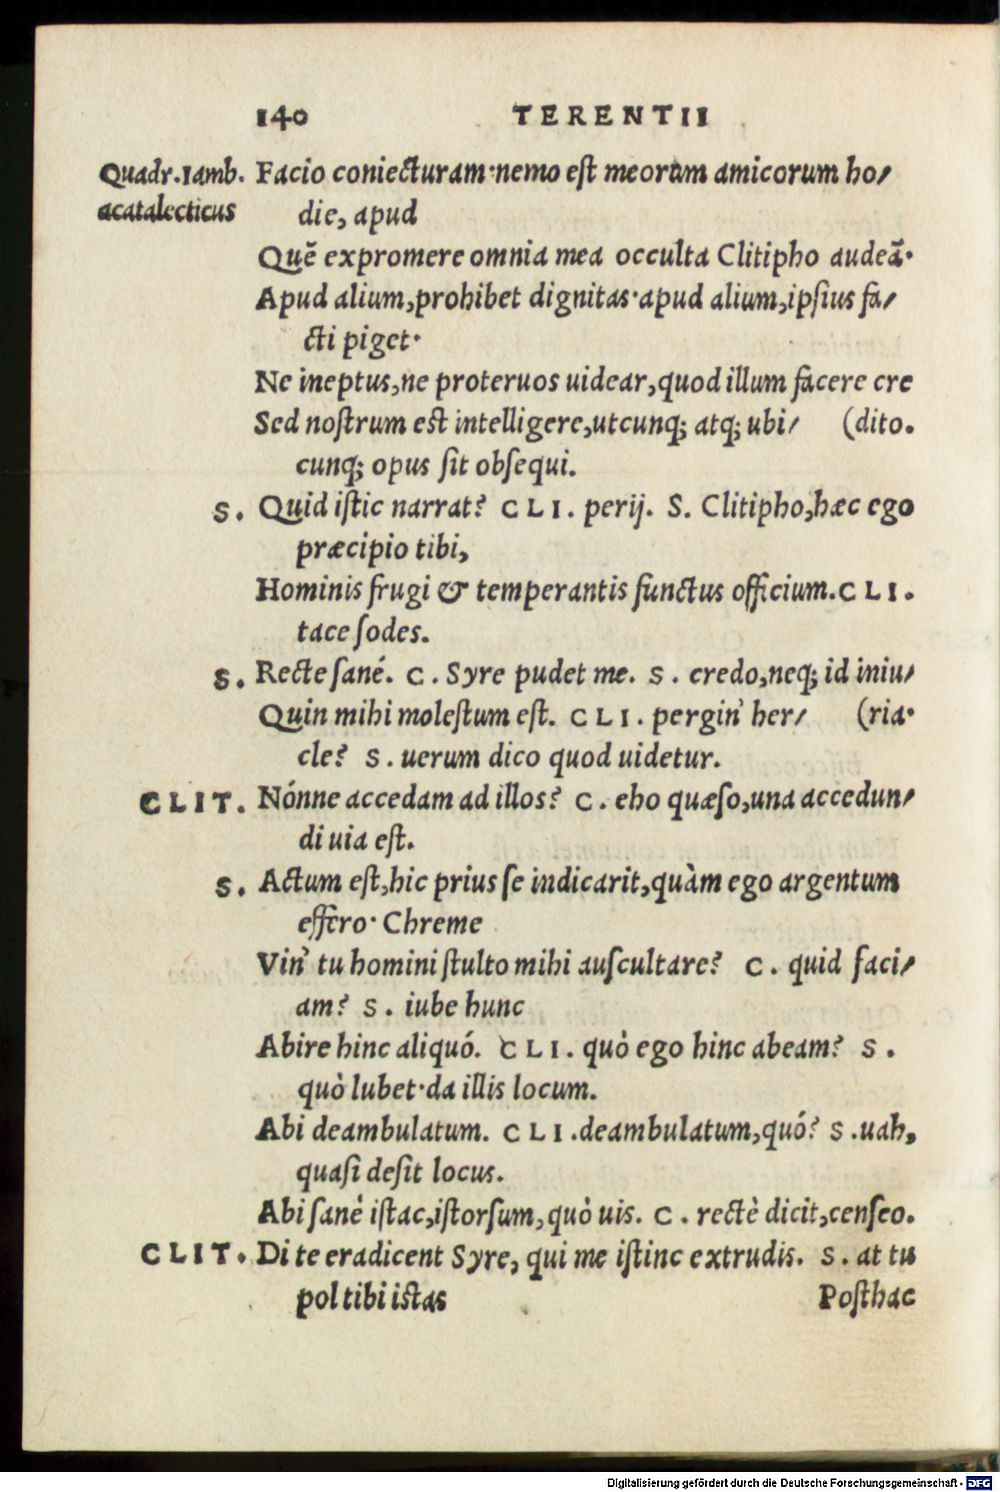 140 TERENTII
Quadr.Iamb. Facio coniecturam·nemo est meorum amicorum ho/
acatalecticus die, apud
Quẽ expromere omnia mea occulta Clitipho audeã·
Apud alium,prohibet dignitas·apud alium,ipsius fa/
cti piget·
Ne ineptus,ne proteruos uidear,quod illum facere cre
Sed nostrum est intelligere,utcunq; atq; ubi/ (dito.
cunq; opus sit obsequi.
S. Quid istic narrat? CLI. perij. S. Clitipho,hæc ego
præcipio tibi,
Hominis frugi & temperantis functus officium.CLI.
tace sodes.
S. Recte sané. C. Syre pudet me. S. credo,neq; id iniu/
Quin mihi molestum est. CLI. pergin' her/ (ria·
cle? S. uerum dico quod uidetur.
CLIT. Nónne accedam ad illos? C. eho quæso,una accedun/
di uia est.
S. Actum est,hic prius se indicarit,quàm ego argentum
effero· Chreme
Vin' tu homini stulto mihi auscultare? C. quid faci/
am? S. iube hunc
Abire hinc aliquó. CLI. quò ego hinc abeam? S.
quò lubet·da illis locum.
Abi deambulatum. CLI.deambulatum,quó? S.uah,
quasi desit locus.
Abi sanè istac,istorsum,quò uis. C. rectè dicit,censeo.
CLIT. Di te eradicent Syre, qui me istinc extrudis. S. at tu
pol tibi istas Posthac
Digitalisierung gefördert durch die Deutsche Forschungsgemeinschaft - DFG